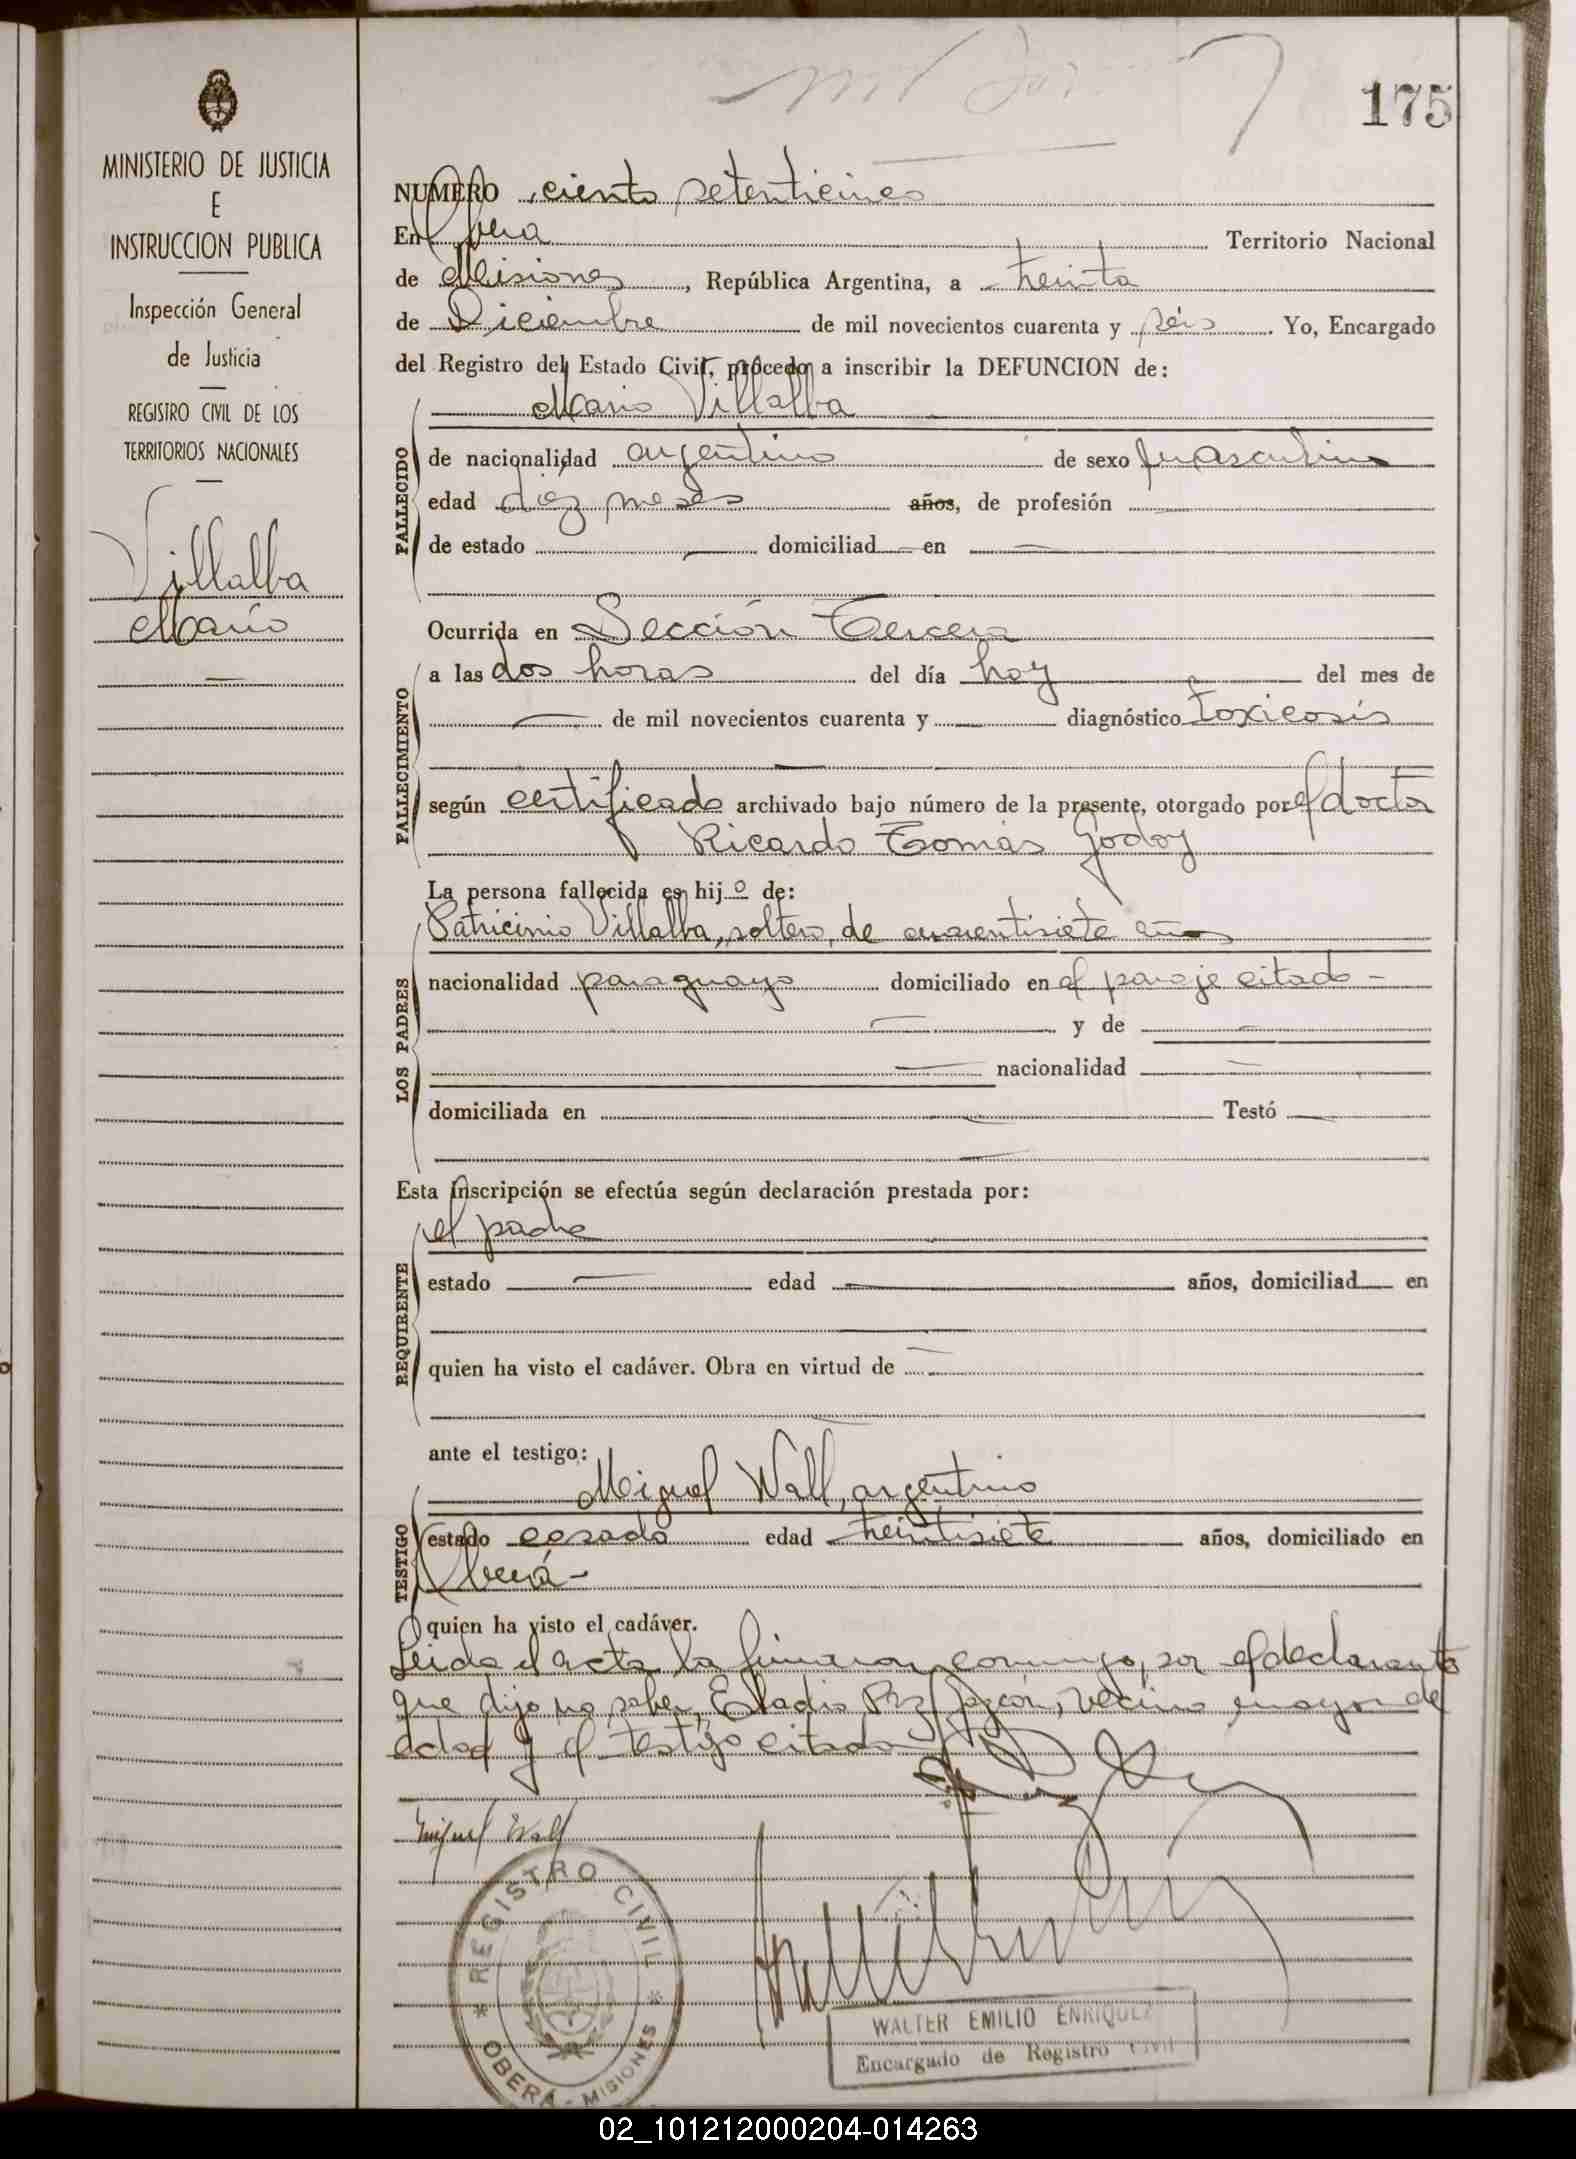 175
MINISTERIO DE JUSTICIA
E
INSTRUCCION PUBLICA
Inspección General
de Justicia
REGISTRO CIVIL DE LOS
TERRITORIOS NACIONALES
Villalba
Mario
NUMERO ciento setenticinco
En Obera Territorio Nacional
de Misiones, República Argentina, a treinta
de Diciembre de mil novecientos cuarenta y seis. Yo, Encargado
del Registro del Estado Civil, procedo a inscribir la DEFUNCION de:
Mario Villalba
FALLECIDO
de nacionalidad argentino de sexo masculino
edad diez meses años, de profesión
de estado — domiciliad — en —
Ocurrida en Sección Tercera
FALLECIMIENTO
a las dos horas del día hoy del mes de
— de mil novecientos cuarenta y — diagnóstico toxicosis
según certificado archivado bajo número de la presente, otorgado por el doctor
Ricardo Tomás Godoy
La persona fallecida es hijo de:
LOS PADRES
Patricinio Villalba, soltero, de cuarentisiete años
nacionalidad paraguayo domiciliado en el paraje citado -
— y de —
— nacionalidad —
domiciliada en — Testó —
Esta inscripción se efectúa según declaración prestada por:
REQUIRENTE
el padre
estado — edad — años, domiciliad — en
quien ha visto el cadáver. Obra en virtud de —
ante el testigo:
TESTIGO
Miguel Wall, argentino
estado casado edad treintisiete años, domiciliado en
Oberá -
quien ha visto el cadáver.
Leida el acta la firmaron conmigo, por el declarante
que dijo no saber, Eladio vecino mayor de
edad y el testigo citado
Miguel Wall
REGISTRO CIVIL
OBERÁ - MISIONES
WALTER EMILIO ENRIQUEZ
Encargado de Registro Civil
02_101212000204-014263